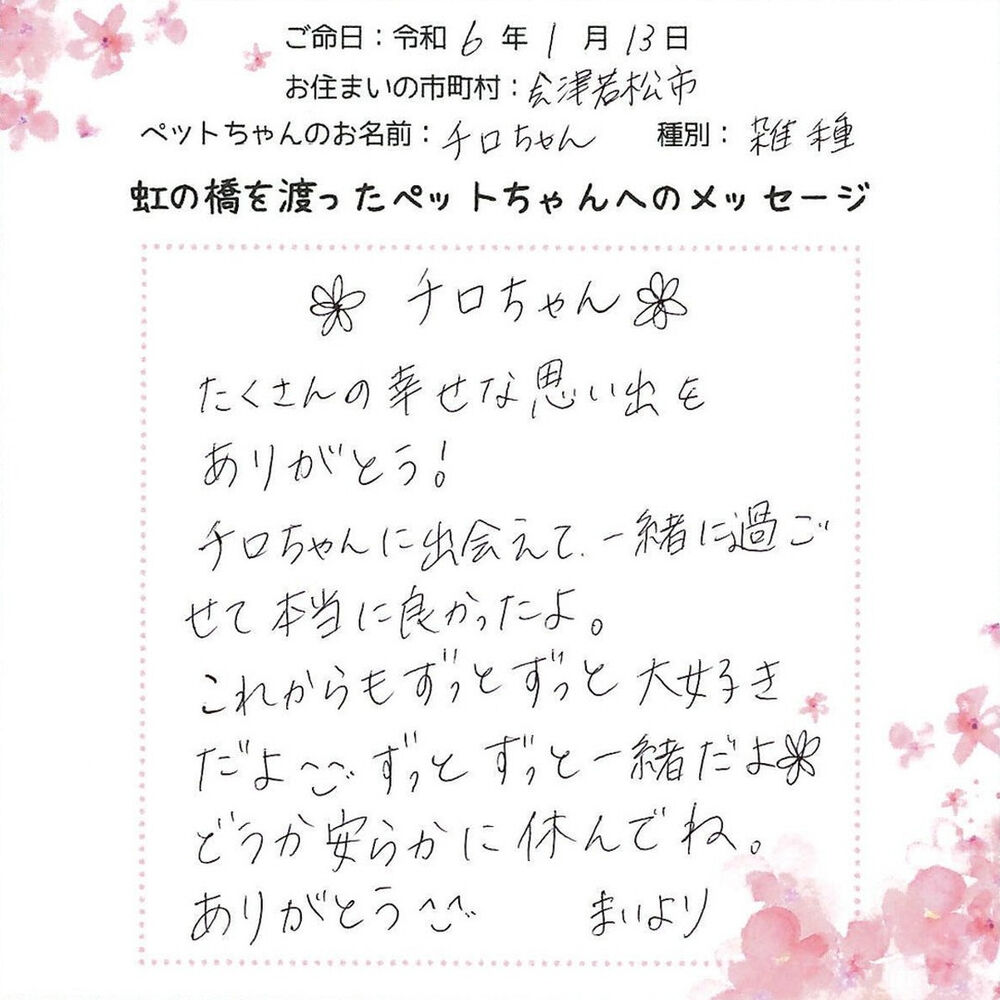 ご命日：令和 6 年 1 月 13 日
お住まいの市町村：会津若松市
ペットちゃんのお名前：チロちゃん　種別：雑種
虹の橋を渡ったペットちゃんへのメッセージ
チロちゃん
たくさんの幸せな思い出を
ありがとう！
チロちゃんに出会えて、一緒に過ご
せて本当に良かったよ。
これからもずっとずっと大好き
だよ^^ ずっとずっと一緒だよ
どうか安らかに休んでね。
ありがとう^^　まいより